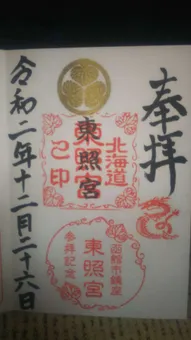 奉拝
北海道
東照宮
己印
令和二年十二月二十六日
函館市鎮座
東照宮
参拝記念